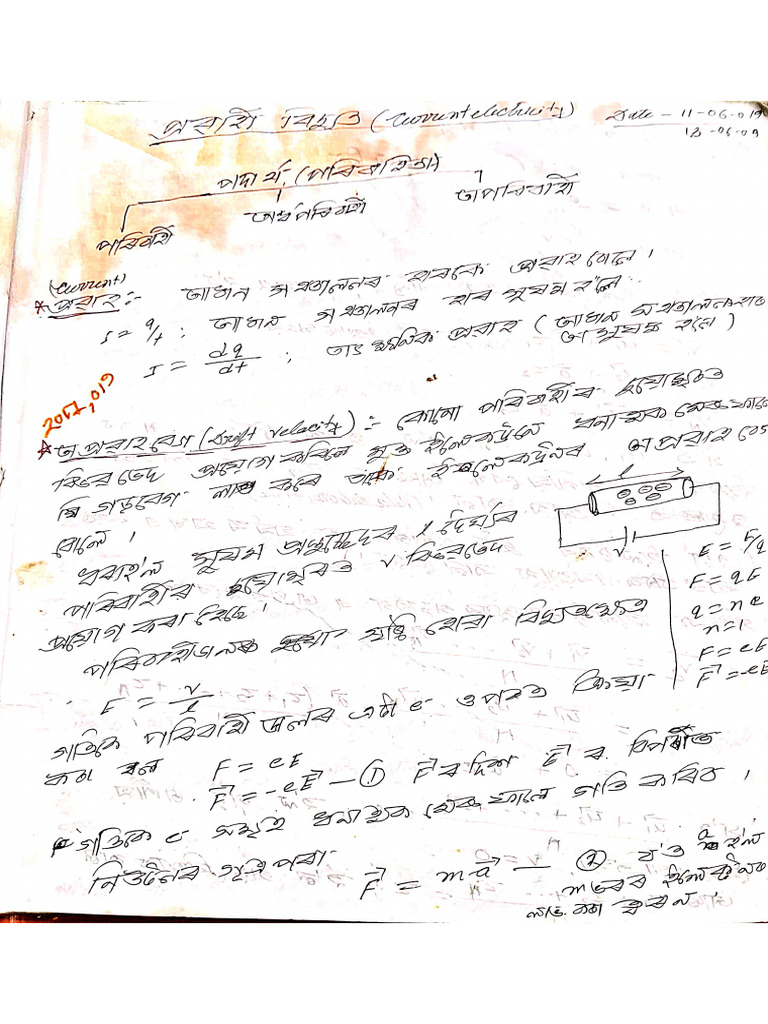 প্ৰবাহী বিদ্যুত (Current electricity) Date - 11-06-019
13-06-09
পদাৰ্থ (পৰিবাহিতা)
পৰিবাহী অৰ্ধপৰিবাহী অপৰিবাহী
(Current)
*প্ৰবাহ:- আধান সঞ্চালনৰ হাৰকে প্ৰবাহ বোলে।
I = q/t ; আধান সঞ্চালনৰ হাৰ সুষম হ'লে
I = dq/dt ; তাৎক্ষনিক প্ৰবাহ (আধান সঞ্চালনৰ হাৰ অসুষম হ'লে)
2017,019
*অপ্ৰবাহ বেগ (Drift velocity):- কোনো পৰিবাহীৰ দুয়োমূৰত
বিভৱভেদ প্ৰয়োগ কৰিলে মুক্ত ইলেকট্ৰনে ধনাত্মক মেৰুৰ ফালে
যি গড়বেগ লাভ কৰে তাকে ইলেকট্ৰনৰ অপ্ৰবাহ বেগ
বোলে।
l
V
ধৰাহ'ল সুষম প্ৰস্থচ্ছেদৰ l দৈৰ্ঘ্যৰ
পৰিবাহীৰ দুয়োমূৰত V বিভৱভেদ
প্ৰয়োগ কৰা হৈছে।
পৰিবাহীডালৰ মাজত সৃষ্টি হোৱা বিদ্যুতক্ষেত্ৰ
E = V/l
E = F/q
F = qE
q = ne
n = 1
F = eE
F⃗ = -eE⃗
গতিকে পৰিবাহীডালৰ এটা e ওপৰত ক্ৰিয়া
কৰা বল F = eE
F⃗ = -eE⃗ — ① F⃗ ৰ দিশ E⃗ ৰ বিপৰীত
গতিকে e সমূহ ধনাত্মক মেৰুৰ ফালে গতি কৰিব।
নিউটনৰ সূত্ৰ পৰা
F⃗ = ma⃗ — ② য'ত a হ'ল
m ভৰৰ ইলেকট্ৰনে
লাভ কৰা ত্বৰণ।